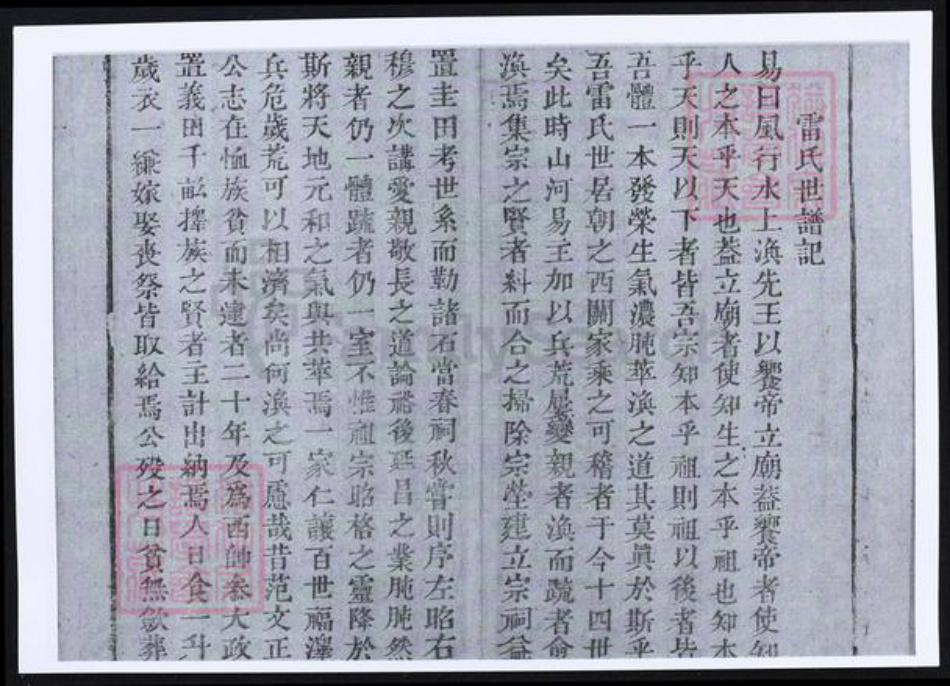 雷氏世譜記
易曰風行水上渙先王以饗帝立廟葢饗帝者使知
人之本乎天也葢立廟者使知生之本乎祖也知本
乎天則天以下者皆吾宗知本乎祖則祖以後者皆
吾體一本發榮生氣濃肫萃渙之道其莫眞於斯乎
吾雷氏世居朝之西關家乘之可稽者于今十四世
矣此時山河易王加以兵荒屢變親者渙而疏者
渙焉集宗之賢者糾而合之掃除宗塋建立宗祠益
置圭田考世系而勒諸石當春祠秋嘗則序左昭右
穆之次講愛親敬長之道論裕後延昌之業肫肫然
親者仍一體疏者仍一室不惟祖宗昭格之靈降於
斯將天地元和之氣與共萃焉一家仁讓百世福澤
兵危歲荒可以相濟矣尚何渙之可慮哉昔范文正
公志在恤族貧而未逮者二十年及爲西帥叅大政
置義田千畝擇族之賢者主計出納焉人日食一升
歲衣一縑嫁娶喪祭皆取給焉公歿之日貧無歛葬